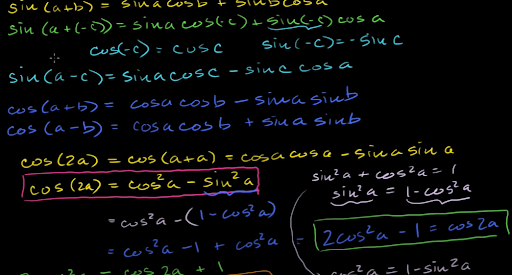 sin(a+b) = sina cosb + sinb cosa
sin(a+(-c)) = sina cos(-c) + sin(-c) cosa
cos(-c) = cosc sin(-c) = -sinc
sin(a-c) = sina cosc - sinc cosa
cos(a+b) = cosa cosb - sina sinb
cos(a-b) = cosa cosb + sina sinb
cos(2a) = cos(a+a) = cosa cosa - sina sina
cos(2a) = cos²a - sin²a
sin²a + cos²a = 1
sin²a = 1-cos²a
= cos²a - (1-cos²a)
= cos²a - 1 + cos²a = 2cos²a - 1 = cos2a
cos2a + 1
cos²a = 1-sin²a